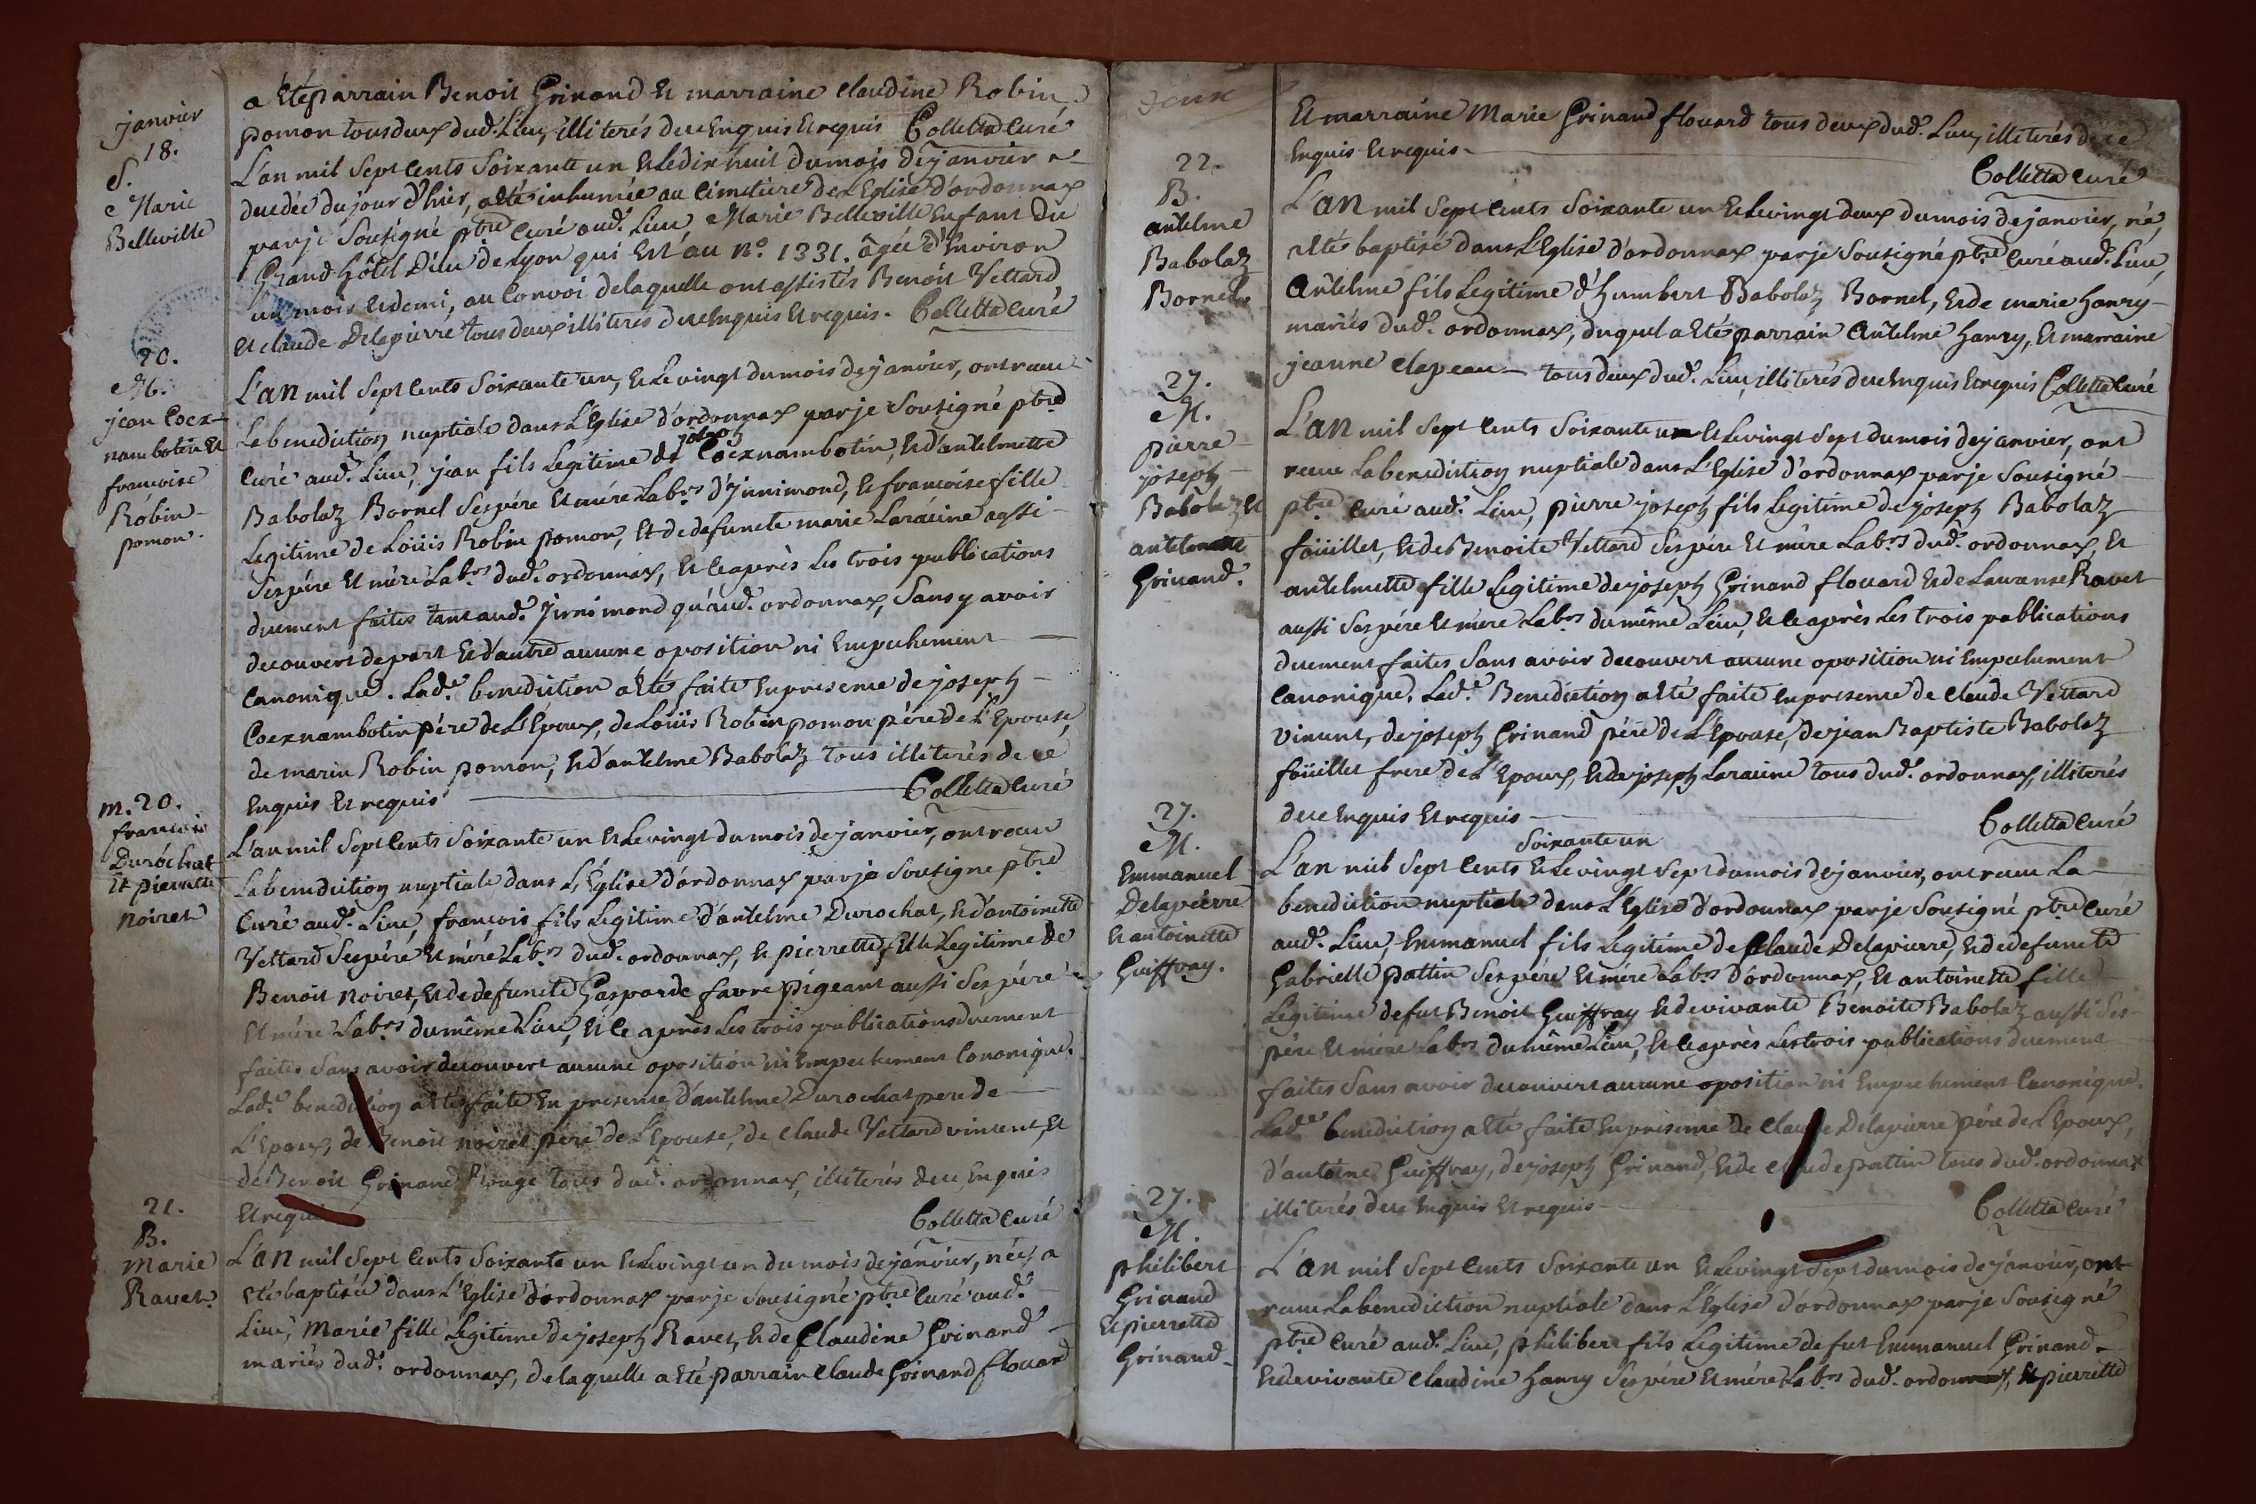 a Eté parrain Benoit Grinand Et marraine Claudine Robin
pomon tous deux dud. Lieu, illiterés de ce Enquis Et requis Colletta Curé
janvier
18.
S.
Marie
Belleville
L'an mil Sept Cents Soixante un Et le dix huit du mois de janvier
decedée du jour d'hier, a été inhumée au Cimetiere de L'Eglise d'ordonnax
par je Sousigné ptre Curé aud. Lieu, Marie Belleville Enfant Du
Grand hôtel Dieu de Lyon qui Est au No. 1331. âgée d'Environ
un mois Et demi, au Convoi de laquelle ont assistés Benoit Vettard
Et claude Delapierre tous deux illiterés de ce Enquis Et requis. Colletta Curé
20.
M.
jean Coex-
nambotin Et
francoise
Robin-
pomon.
L'an mil Sept Cents Soixante un, Et Le vingt du mois de janvier, ont recu
La benediction nuptiale dans L'Eglise d'ordonnax par je Sousigné ptre
joseph
Curé aud. Lieu, jean fils Legitime de Coexnambotin, Et d'antelmette
Babolaz Bornel Ses pére Et mére Labrs d'jnnimond, Et francoise fille
Legitime de Loüis Robin pomon, Et de defuncte marie Laracine aussi
Ses pére Et mére Labrs dud. ordonnax, Et ce après Les trois publications
duement faites tant aud. jnnimond qu'aud. ordonnax, Sans y avoir
decouvert de part Et d'autre aucune oposition ni Empechement
Canonique. Lad.e benediction a Eté faite En presence de joseph
Coexnambotin pére de L'Epoux, de Loüis Robin pomon pére de L'Epouse,
de marin Robin pomon, Et d'antelme Babolaz tous illiterés de ce
Enquis Et requis Colletta Curé
m. 20.
francois
Durochat
Et pierrette
noiret
L'an mil Sept Cents Soixante un Et Le vingt du mois de janvier, ont recu
La benediction nuptiale dans L'Eglise d'ordonnax par je Sousigné ptre
Curé aud. Lieu, francois fils Legitime d'antelme Durochat, Et d'antoinette
Vettard Ses pére Et mére Labrs dud. ordonnax, Et pierrette fille Legitime de
Benoit Noiret, Et de defuncte Gasparde favre pigeant aussi Ses pére
Et mére Labrs du même Lieu, Et ce après Les trois publications duement
faites Sans avoir decouvert aucune oposition ni Empechement Canonique.
Lad.e benediction a Eté faite En presence d'antelme Durochat pere de
L'Epoux, de Benoit noiret pére de L'Epouse, de Claude Vettard vincent, Et
de Benoit Grinand Rouge tous dud. ordonnax, illiterés de ce Enquis
Et requis Colletta Curé
21.
B.
Marie
Ravet.
L'an mil Sept Cents Soixante un Et Le vingt un du mois de janvier, née, a
Eté baptisée dans L'Eglise d'ordonnax par je Sousigné ptre Curé aud.
Lieu, Marie fille Legitime de joseph Ravet, Et de Claudine Grinand
mariés dud. ordonnax, de laquelle a Eté parrain Claude Grinand flouard
deux
Et marraine Marie Grinand flouard tous deux dud. Lieu, illiterés de ce
Enquis Et requis Colletta Curé
22.
B.
antelme
Babolaz
Bornel.
L'an mil Sept Cents Soixante un Et Le vingt deux du mois de janvier, né,
a Eté baptisé dans L'Eglise d'ordonnax par je Sousigné ptre Curé aud. Lieu,
Antelme fils Legitime d'humbert Babolaz Bornel, Et de marie hanry
mariés dud. ordonnax, duquel a Eté parrain Antelme hanry, Et marraine
jeanne Clapeau tous deux dud. Lieu, illiterés de ce Enquis Et requis Colletta Curé
27.
M.
pierre
joseph
Babolaz Et
antelmette
Grinand.
L'an mil Sept Cents Soixante un Et Le vingt Sept du mois de janvier, ont
recu La benediction nuptiale dans L'Eglise d'ordonnax par je Sousigné
ptre Curé aud. Lieu, pierre joseph fils Legitime de joseph Babolaz
foüillet, Et de Benoite Vettard Ses pére Et mére Labrs dud. ordonnax, Et
antelmette fille Legitime de joseph Grinand flouard Et de Lauranse Ravet
aussi Ses pére Et mére Labrs du même Lieu, Et ce après Les trois publications
duement faites Sans avoir decouvert aucune oposition ni Empechement
Canonique. Lad.e Benediction a Eté faite En presence de Claude Vettard
vincent, de joseph Grinand pére de L'Epouse, de jean Baptiste Babolaz
foüillet frere de L'Epoux, Et de joseph Laracine tous dud. ordonnax, illiterés
de ce Enquis Et requis Colletta Curé
27.
M.
Emmanuel
Delapierre
Et antoinette
Guiffray.
Soixante un
L'an mil Sept Cents Et Le vingt Sept du mois de janvier, ont recu La
benediction nuptiale dans L'Eglise d'ordonnax par je Sousigné ptre Curé
aud. Lieu, Emmanuel fils Legitime de Claude Delapierre, Et de defuncte
Gabrielle pattin Ses pére Et mére Labrs d'ordonnax, Et antoinette fille
Legitime de fut Benoit Guiffray Et de vivante Benoite Babolaz aussi Ses
pére Et mére Labrs du même Lieu, Et ce après Les trois publications duement
faites Sans avoir decouvert aucune oposition ni Empechement Canonique.
Lad.e benediction a Eté faite En presence de Claude Delapierre pére de L'Epoux,
d'antoine Guiffray, de joseph Grinand, Et de Claude pattin tous dud. ordonnax
illiterés de ce Enquis Et requis Colletta Curé
27.
M.
philibert
Grinand
Et pierrette
Grinand.
L'an mil Sept Cents Soixante un Et Le vingt Sept du mois de janvier, ont
recu La benediction nuptiale dans L'Eglise d'ordonnax par je Sousigné
ptre Curé aud. Lieu, philibert fils Legitime de fut Emmanuel Grinand
Et de vivante Claudine hanry Ses pére Et mére Labrs dud. ordonnax, Et pierrette